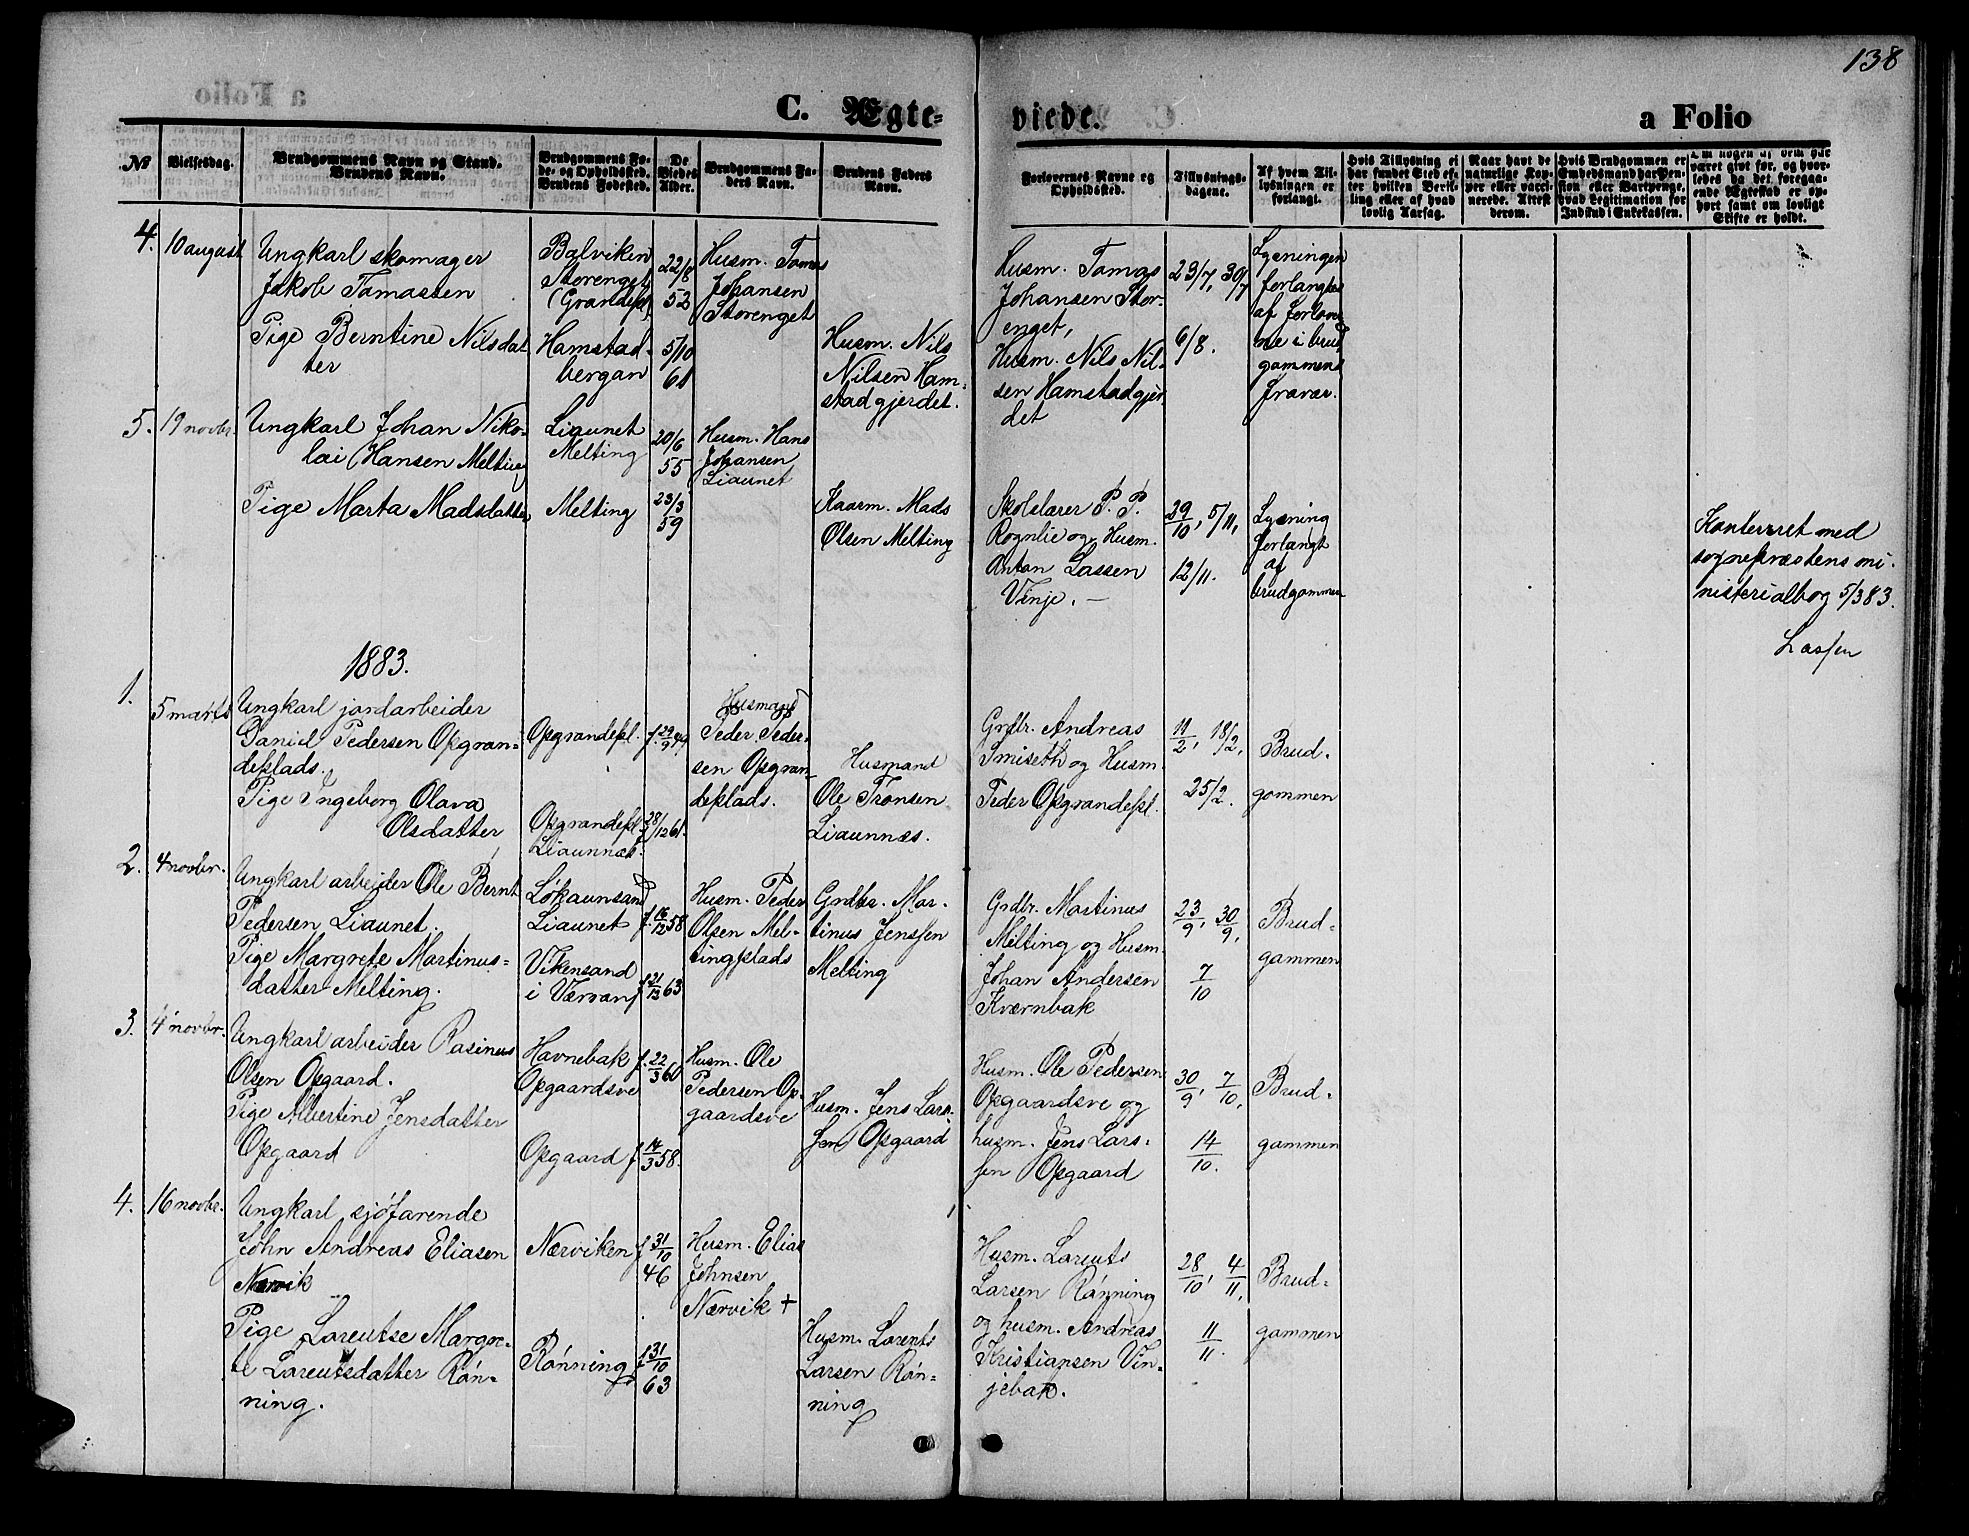 138
C. Ægte=
viede.
a Folio
№
Vielsesdag.
Brudgommens Navn og Stand.
Brudens Navn.
Brudgommens Fø-
de- og Opholdssted.
Brudens Fødested.
De
Viedes
Alder.
Brudgommens Fa-
ders Navn.
Brudens Faders
Navn.
Forlovernes Navne og
Opholdssted.
Tillysnings-
dagene.
Af hvem Til-
lysningen er
forlangt.
Hvis Tillysning ei
har fundet Sted ef-
ter hvilken Bevil-
ling eller af hvad
lovlig Aarsag.
Naar havt de
naturlige Kop-
per eller vacci-
nerede. Attest
derom.
Hvis Brudgommen er
Embedsmand har Pen-
sion eller Vartpenge,
hvad Legitimation for
Indskud i Enkekassen.
Om nogen af dem har
været givt før, og hvor-
ledes da det foregaa-
ende Ægteskab er op-
hørt samt om lovligt
Skifte er holdt.
4.
10 august
Ungkarl skomager
Jakob Tomassen
Pige Berntine Nilsdat
ter
Balviken
Storenget
Hamstad-
bergan
22/8
52
5/10
61
Husm. Tomas
Johansen
Storenget
Husm. Nils
Nilsen Ham-
stadgjerdet.
Husm. Tomas
Johansen Stor-
enget,
Husm. Nils Nil-
sen Hamstadgjer
det
23/7, 30/7
6/8.
Lysningen
forlangtes
af forlover
ne i brud
gommens
fravær.
5.
19 novbr.
Ungkarl Johan Niko-
lai Hansen Melting
Pige Marta Madsdatter
Liaunet
Melting
Melting
20/6
55
23/3
59
Husm. Hans
Johansen
Liaunet
Kaarm. Mads
Olsen Melting
Skolelærer P. P.
Rognlie og Husm.
Anton Lassen
Vinje. —
29/10, 5/11,
12/11.
Lysning
forlangt
af
brudgommen
Konferret med
sognepræstens mi-
nisterialbog 5/3 83.
Lassen
1883.
1.
5 marts
Ungkarl jordarbeider
Daniel Pedersen Opgran=
deplads.
Pige Ingeborg Olava
Olsdatter
Opgrandepl.
Opgrandepl
Liaunnæs.
f. 29/9 49
28/12 61.
Husmand
Peder Peder-
sen Opgran-
deplads.
Husmand
Ole Tronsen
Liaunnæs.
Grdbr. Andreas
Smiseth og Husm.
Peder Opgrandepl.
11/2, 18/2,
25/2.
Brud-
gommen
2.
4 novbr.
Ungkarl arbejder Ole Bernt
Pedersen Liaunet.
Pige Margrete Martinus=
datter Melting.
Løkaunsand
Liaunet
Vikensand
i Værran
f. 16/12 58
f 21/12 63
Husm. Peder
Olsen Mel-
tingplads
Grdbr. Mar-
tinus Jenssen
Melting
Grdbr. Martinus
Melting og Husm.
Johan Andersen
Kværnbak
23/9, 30/9,
7/10
Brud=
gommen
3.
4 novbr.
Ungkarl arbeider Rasinus
Olsen Opgaard.
Pige Albertine Jensdatter
Opgaard
Havnebak
Opgaardsve
Opgaard
f. 22/3 60
f 14/3 58.
Husm. Ole
Pedersen Op-
gaardsve
Husm. Jens Lars-
sen Opgaard
Husm. Ole Pedersen
Opgaardsve og
husm. Jens Lars-
sen Opgaard
30/9, 7/10,
14/10.
Brud-
gommen
4.
16 novbr.
Ungkarl sjøfarende
John Andreas Eliasen
Nærvik
Pige Lorentse Margre-
te Lorentsdatter Røn-
ning.
Nærviken
Rønning
f 31/10
46
f 31/10
63
Husm. Elias
Johnsen
Nærvik +
Husm. Lorents
Larsen Røn=
ning
Husm. Lorents
Larsen Rønning
og husm. Andreas
Kristiansen Vin-
jebak.
28/10, 4/11,
11/11.
Brud=
gommen